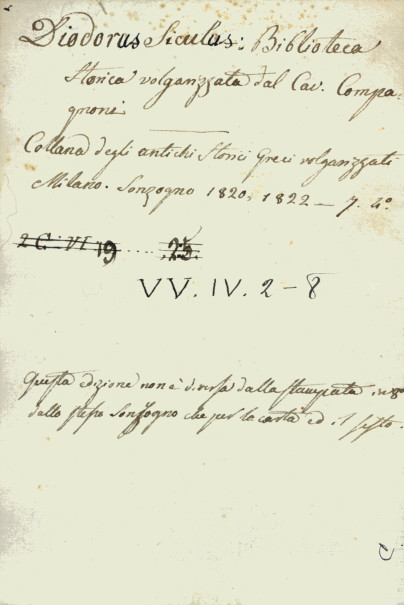 Diodorus Siculus: Biblioteca
Storica volgarizzata dal Cav. Compa-
gnoni
Collana degli antichi Storici Greci volgarizzati
Milano. Sonzogno 1820, 1822 — 7. 4.º
2 C. VI 19 .... 25.
VV. IV. 2 - 8
Questa edizione non è diversa dalla stampata in 8º
dallo stesso Sonzogno che per la carta ed il sesto.
C